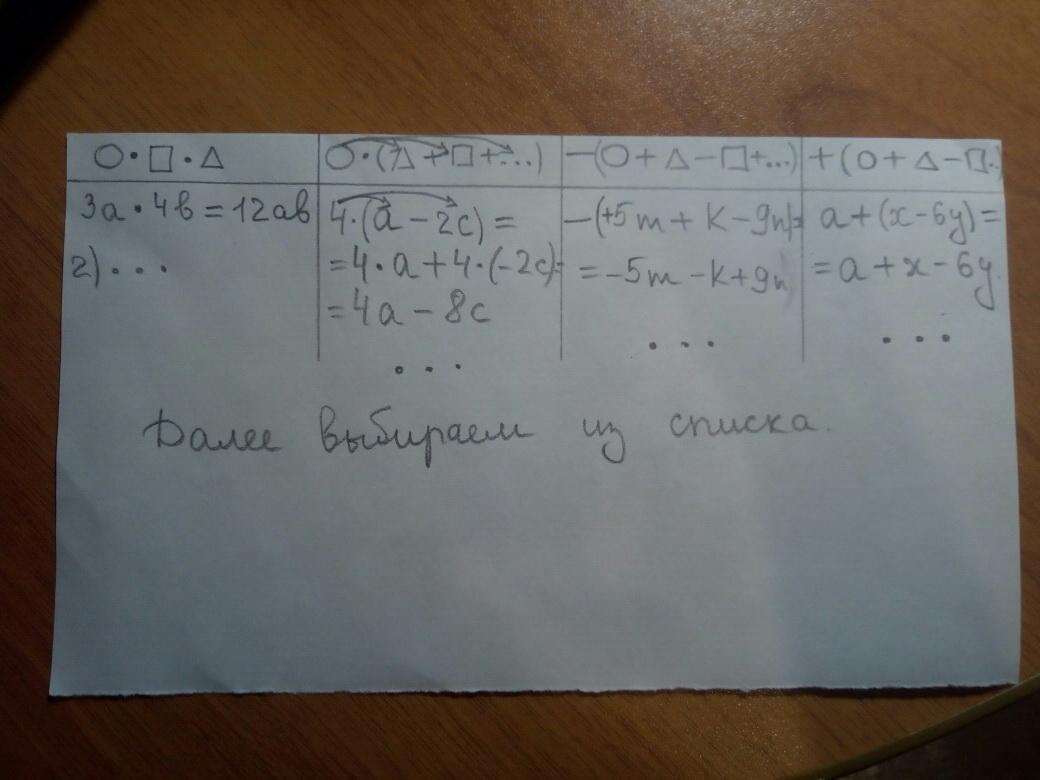 ○ · □ · △
○ · (△ + □ + ...)
−(○ + △ − □ + ...)
+ (○ + △ − □..)
3а · 4в = 12ав
2) ...
4·(а − 2с) =
= 4·а + 4·(−2с) =
= 4а − 8с
...
−(+5m + k − 9n) =
= −5m − k + 9n
...
a + (x − 6y) =
= a + x − 6y.
...
Далее выбираем из списка.